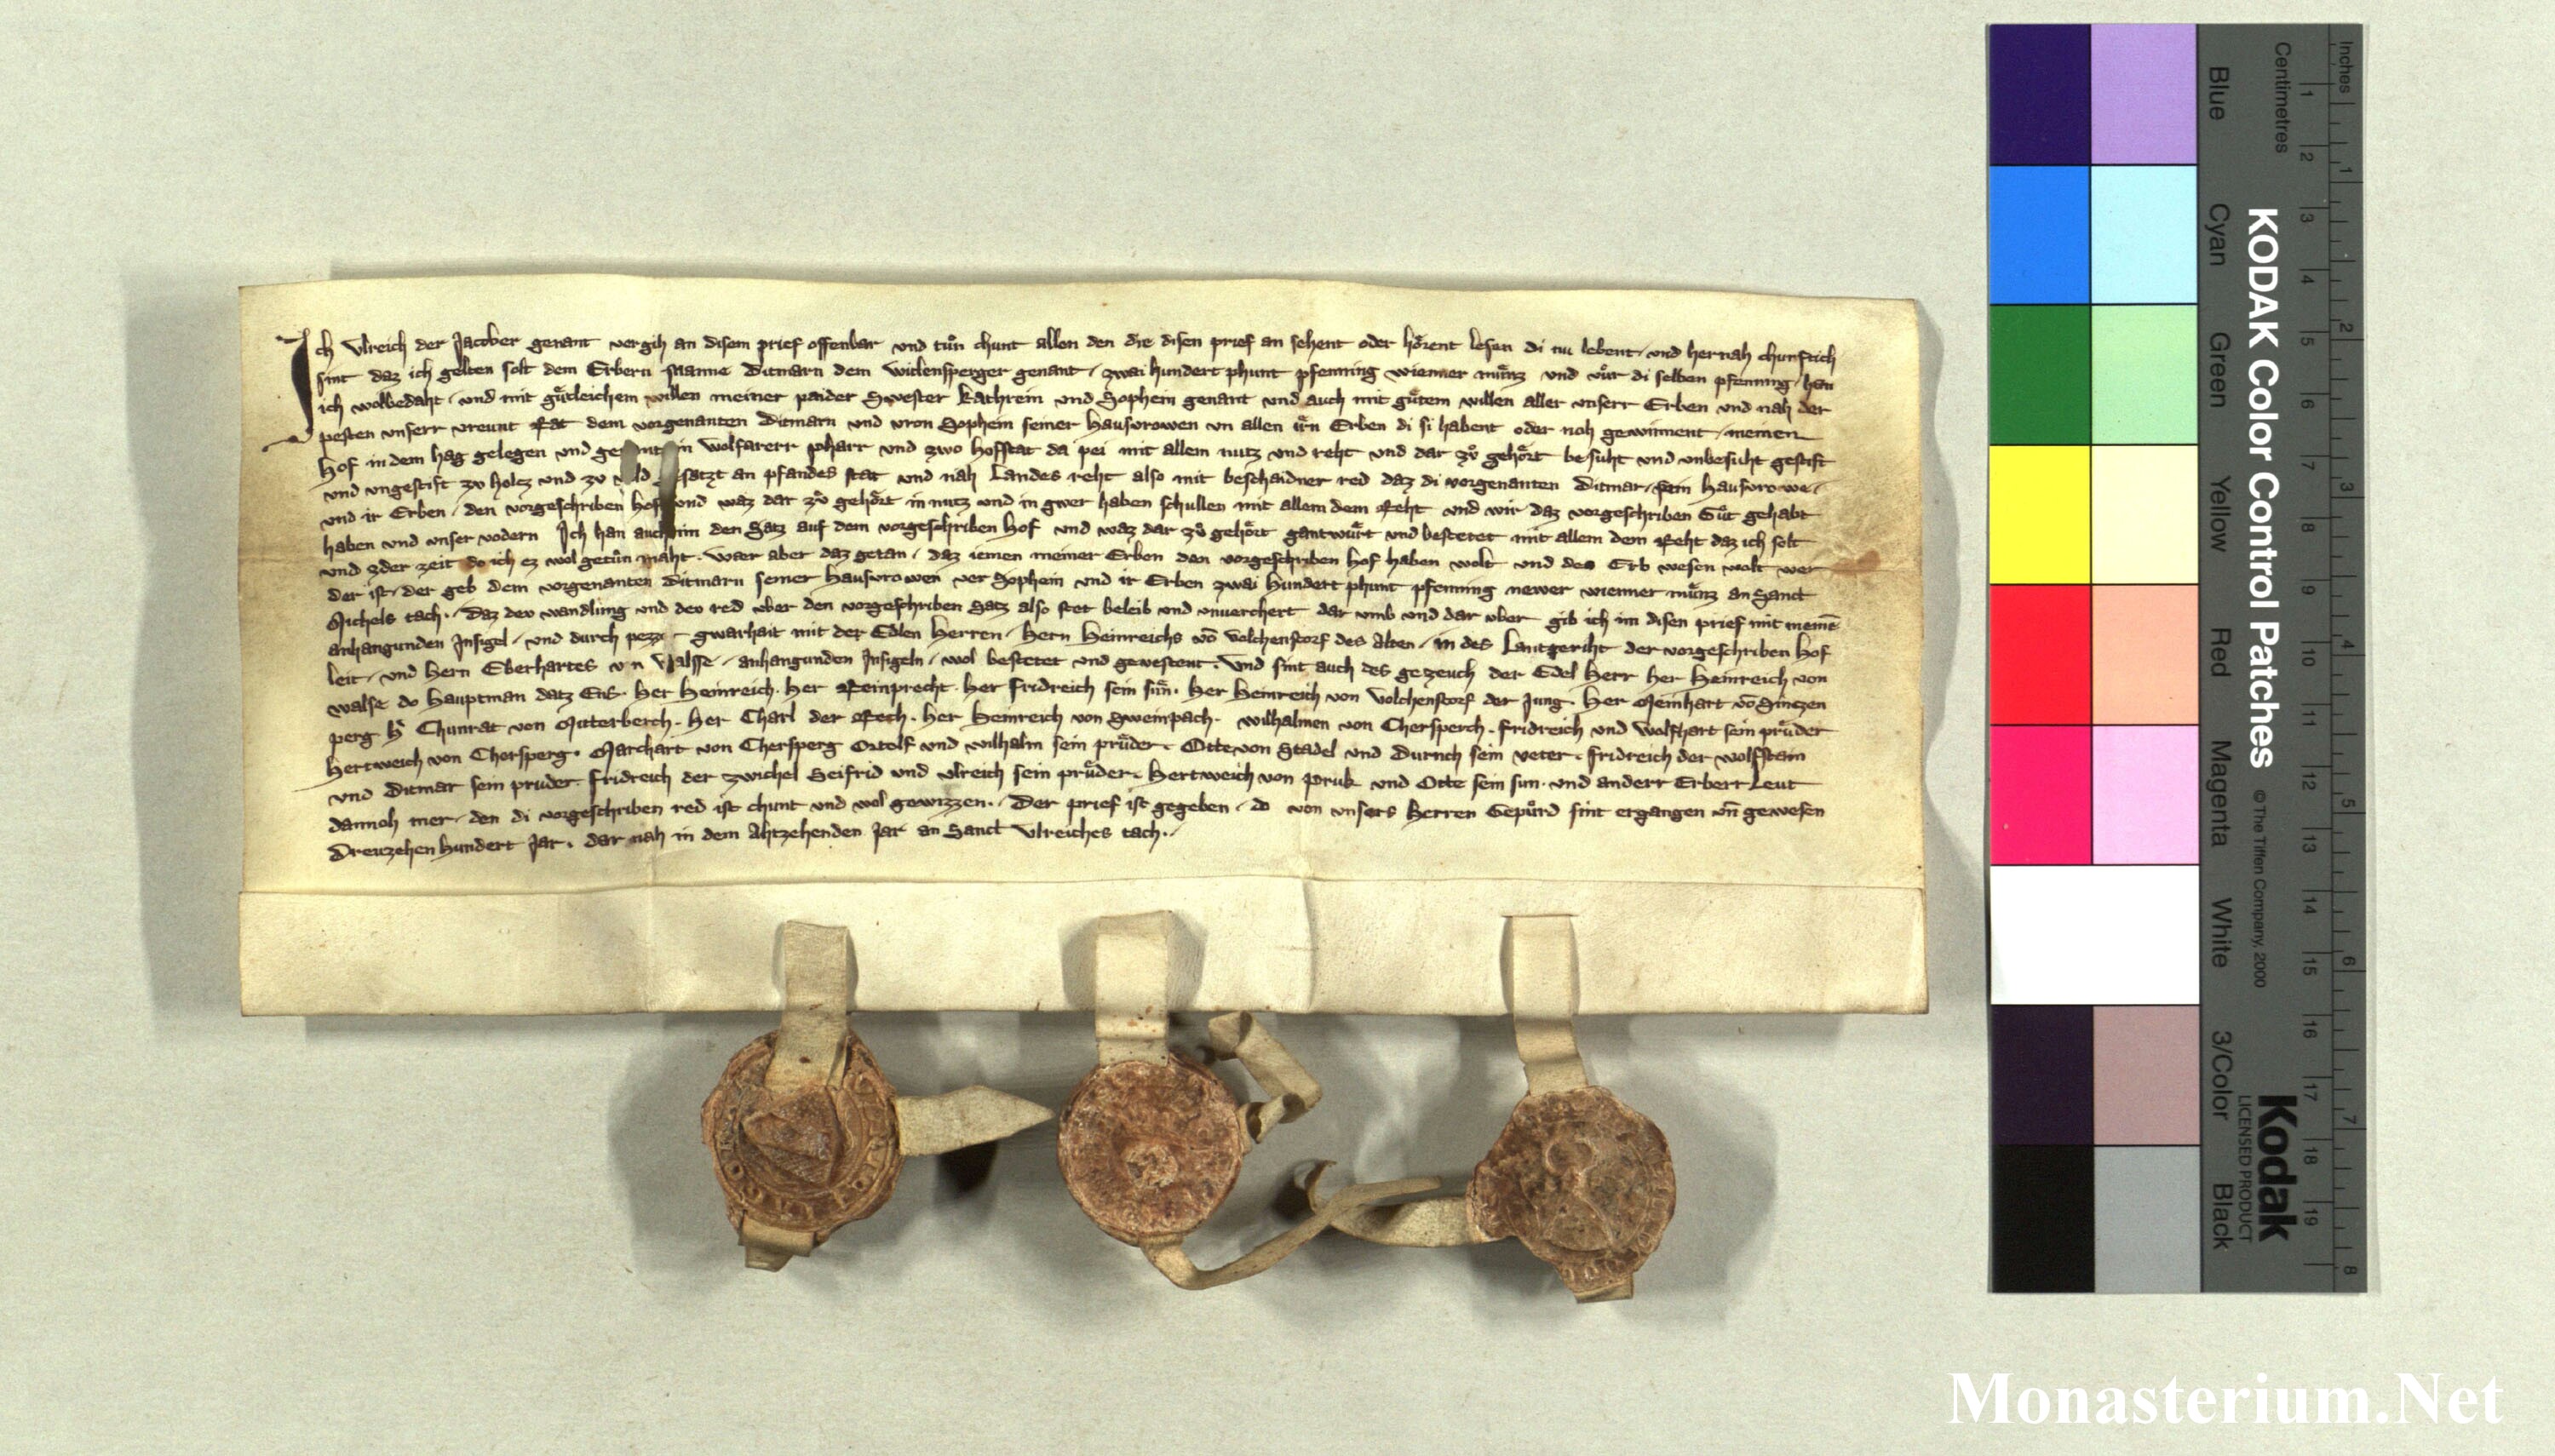 Ich Ulreich der Jacober genant vergih an disem prief offenbar und tuͦn chunt allen den die disen prief an sehent oder hoͤrent lesen di nu lebent und hernah chunftich
sint daz ich gelten solt dem Erbern Manne Ditmarn dem widensperger genant zwai hundert phunt pfenning wienner muͤnz und vuͤr di selben pfenning han
ich wolbedaht und mit guͤtleichem willen meiner paider Swester kathrein und Sophein genant und auch mit guͦtem willen aller unserr Erben und nah der
pesten unserr vreunt Rat dem vorgenanten Ditmarn und vron Sophein seiner Hausvrowen un allen iren Erben di si habent oder noh gewinnent meinen
Hof in dem hag gelegen und in wolfarerr pharr und zwo hofstat da pei mit allem nutz und reht und dar zuͦ gehoͤrt besuht und unbesuht gestift
und ungestift zv holcz und zv gesatzt an pfandes stat und nah Landes reht also mit beschaidner red daz di vorgenanten Ditmar sein hausvrowe
und ir Erben den vorgeschriben hof und waz dar zuͦ gehoͤrt in nutz und in gwer haben schullen mit allem dem Reht und wir daz vorgeschriben Guͦt gehabt
haben und unser vodern Ich han auch im den Satz auf dem vorgeschriben hof und waz dar zuͦ gehoͤrt gantwuͤrt und bestetet mit allem dem Reht daz ich solt
und zder zeit do ich ez wol getuͦn maht. waer aber daz getan daz iemen meiner Erben den vorgeschriben hof haben wolt und des Erb wesen wolt wer
der ist der geb dem vorgenanten Ditmarn seiner hausvrowen ver Sophein und ir Erben zwai hundert phunt pfenning newer wienner muͤnz an Sand
Michels tach. Daz dev wandlung und dev red uber den vorgeschriben Satz also stet beleib und unverchert dar umb und dar uber gib ich im disen prief mit meinē
anhangunden Insigel und durch gwarhait mit der Edlen Herren Hern Heinreichs vō Volchenstorf des Alten in des Lantgeriht der vorgeschriben hof
leit und Hern Eberhartes von Walsse anhangunden Insigeln wol bestetet und gevestent. Und sint auch des gezeuch der Edel Herr her Heinreich von
walse do Hauptman datz Ens. Her Heinreich. Her Reinprecht. Her Fridreich sein suͤn. Her Heinreich von Volchenstorf der Jung. Her Meinhart vō Sinczen
perg Chunrat von Mitterberch. Her Charl der Rech. Her Heinreich von Sweinpach. wilhalmen von Chersperch. Fridreich und Wolfhart sein pruͤder
Hertweich von Chersperg. Marchart von Chersperg Ortolf und wilhalm sein pruͤder. Otte von Stadel und Durinch sein veter. Fridreich der wolfstain
und Ditmar sein pruder. Fridreich der zwichel Seifrid und Ulreich sein pruͤder. Hertweich von Pruk und Otte sein sun. und anderr Erberr Leut
dannoh mer den di vorgeschriben red ist chunt und wol gewizzen. Der prief ist gegeben do von unsers Herren Gepuͤrd sint ergangen uñ gewesen
Dreuzehen hundert Jar. dar nah in dem Ahtzehenden Jar an Sand Ulreiches tach.
Inches
Centimetres
1 2 3 4 5 6 7 8
1 2 3 4 5 6 7 8 9 10 11 12 13 14 15 16 17 18 19
KODAK Color Control Patches
© The Tiffen Company, 2000
Kodak
LICENSED PRODUCT
Blue Cyan Green Yellow Red Magenta White 3/Color Black
Monasterium.Net